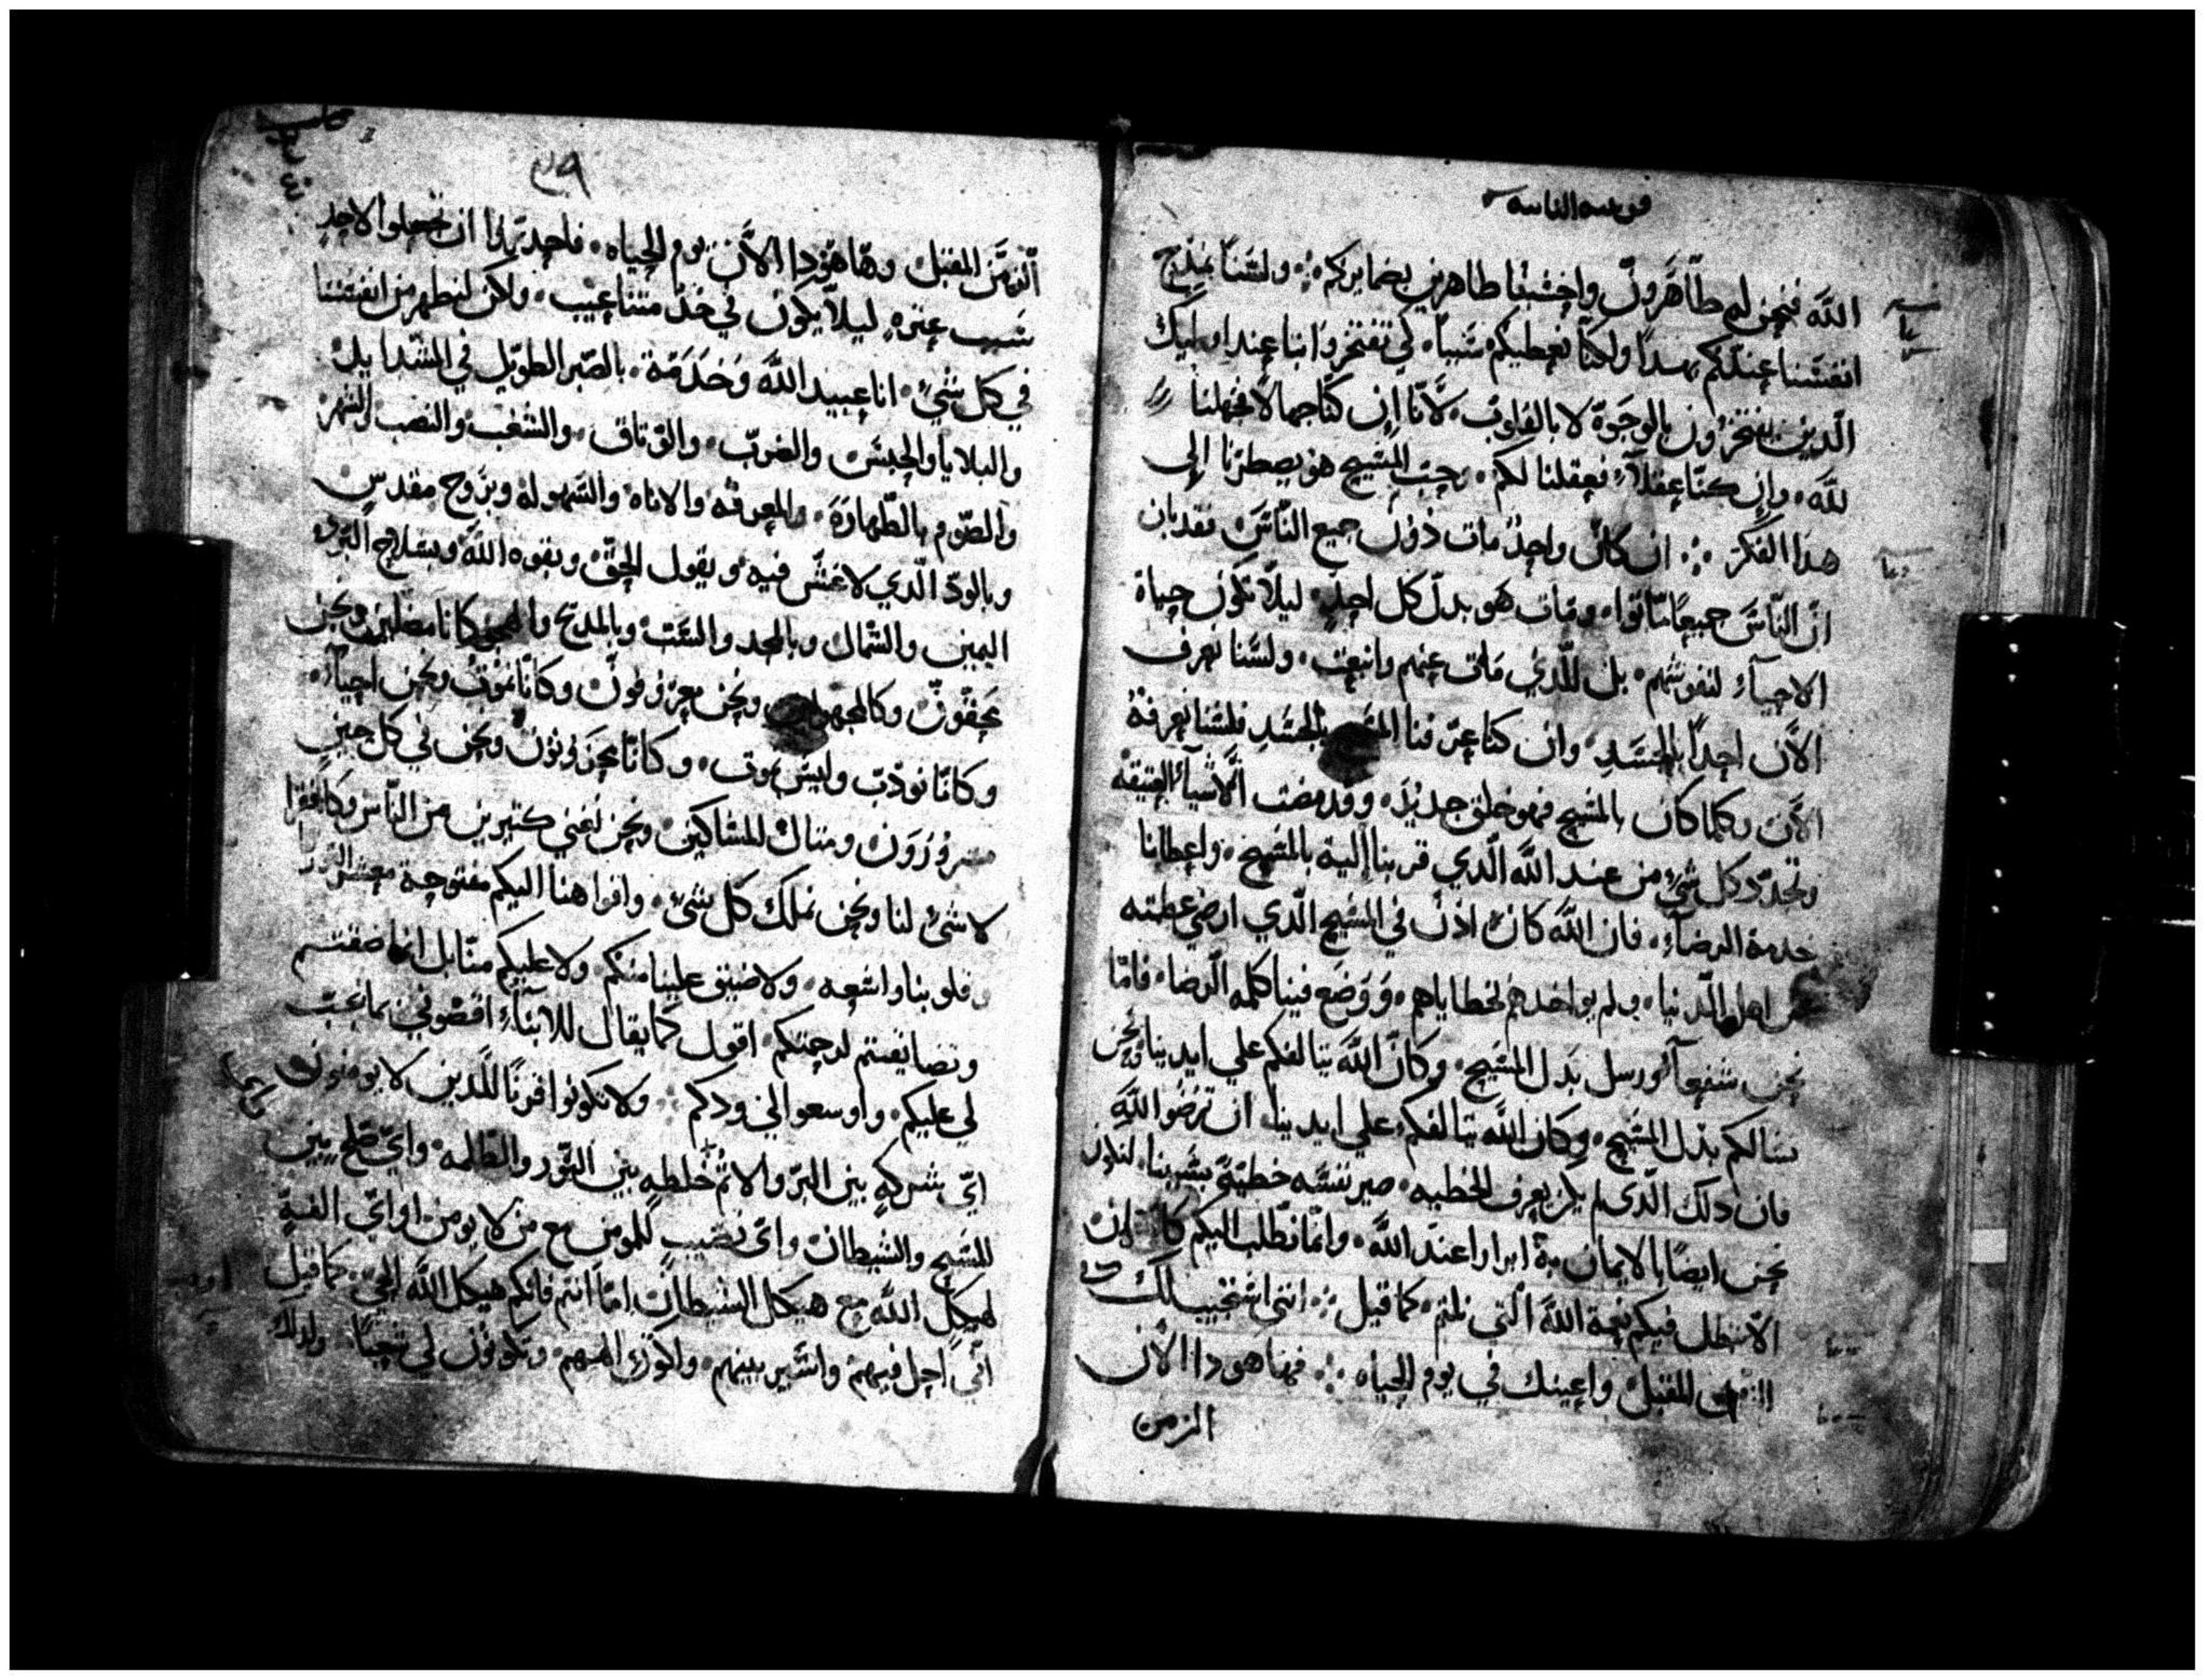 قورنتيه الثانيه
الله فنحن له ظاهرون واحسبنا ظاهرين بضمايركم ولسنا نمدح
انفسنا عندكم بهذا ولكنا نعطيكم سببا كي تفتخروا بنا عند اوليك
الذين يفتخرون بالوجوه لا بالقلوب لانا ان كنا جهالا فجهلنا
لله وان كنا عقلاء فعقلنا لكم وحب المسيح هو يضطرنا الى
هذا الفكر ان كان واحد مات دون جميع الناس فقد بان
ان الناس جميعا ماتوا ومات هو بدل كل احد ليلا تكون حياة
الاحياء لنفوسهم بل للذي مات عنهم وانبعث ولسنا نعرف
الان احدا بالجسد وان كنا عرفنا المسيح بالجسد فلسنا نعرفه
الان وكلما كان بالمسيح فهو خلق جديد وقد مضت الاشياء العتيقه
وتجدد كل شيء من عند الله الذي قربنا اليه بالمسيح واعطانا
خدمة الرضاء فان الله كان اذن في المسيح الذي ارضى عظمته
عن اهل الدنيا ولم يواخذهم بخطاياهم ووضع فينا كلمه الرضا فاما
نحن شفعآ ورسل بدل المسيح وكان الله يتالفكم على ايدينا ونحن
نسالكم بدل المسيح وكان الله يتالفكم على ايدينا ان ترضوا الله
فان ذلك الذي لم يكن يعرف الخطيه صير نفسه خطية بسببنا لنكون
نحن ايضا بالايمان به ابرارا عند الله وانما نطلب اليكم
الا تبطل فيكم نعمة الله التي نلتم كما قيل انني استجيب لك في
الزمن المقبل واعينك في يوم الحياه فها هودا الان
الزمن
٣٩
٤٠
الزمن المقبل وها هودا الان يوم الحياه فاحذروا ان تجعلوا لاحد
سبب عثره ليلا يكون في خدمتنا عيب ولكن لنظهر من انفسنا
في كل شيء انا عبيد الله وخدمه بالصبر الطويل في الشدايد
والبلايا والحبس والضرب والوثاق والشغب والنصب والسهر
والصوم بالطهارة والمعرفه والاناه والسهوله وبروح مقدس
وبالود الذي لا غش فيه وبقول الحق وبقوه الله وبسلاح البر
اليمين والشمال وبالمجد والشتم وبالمديح والهجو كانا مضلين ونحن
محقون وكالمجهولين ونحن معروفون وكانا نموت ونحن احياء
وكانا نودب وليس نموت وكانا محزونون ونحن في كل حين
مسرورون ومثال المساكين ونحن نغني كثيرين من الناس وكافقرا
لا شي لنا ونحن نملك كل شيء وافواهنا اليكم مفتوحة
وقلوبنا واسعه ولا ضيق علينا منكم ولا عليكم منا بل انما ضقتم
وتضايقتم لرحمتكم اقول كما يقال للابناء اقضوني ما يجب
لي عليكم واوسعوا لي ودكم ولا تكونوا قرنا للذين لا يومنون
اي شركه بين البر والاثم خلطه بين النور والظلمه واي صلح بين
المسيح والشيطان واي نصيب للمومن مع من لا يومن او اي الفة
لهيكل الله مع هيكل الشيطان اما انتم فانكم هيكل الله الحي كما قيل
اني احل فيهم واسير بينهم واكون الههم ويكونون لي شعبا ولذلك